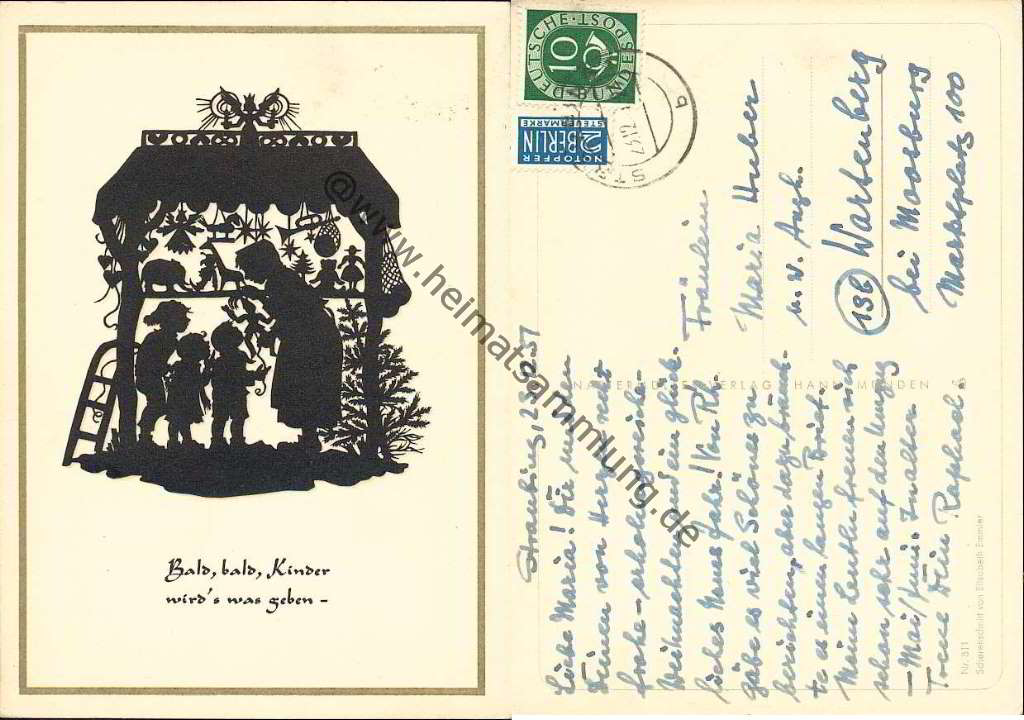 Bald, bald, Kinder
wird's was geben -
@www.heimatsammlung.de
DEUTSCHE · BUNDESPOST
10
NOTOPFER
2 BERLIN
STEUERMARKE
Straubing, 23.12.51
Liebe Maria! Dir u. den
Deinen von Herzen recht
frohe - erholungsreiche -
Weihnachten und ein glück-
liches Neues Jahr!
gäbe es viel Schönes zu
berichten, aber dazu brauch-
te es einen langen Brief.
Meine Leutln freuen sich
schon sehr auf den Umzug
- Mai/Juni. In alter
Treue Dein Raphael
Fräulein
Maria Huber
u. w. Angh.
(13b) Wartenberg
bei Moosburg
Marktplatz 100
VERLAG, HANN. MÜNDEN
Nr. 311
Scherenschnitt von Elisabeth Emmler